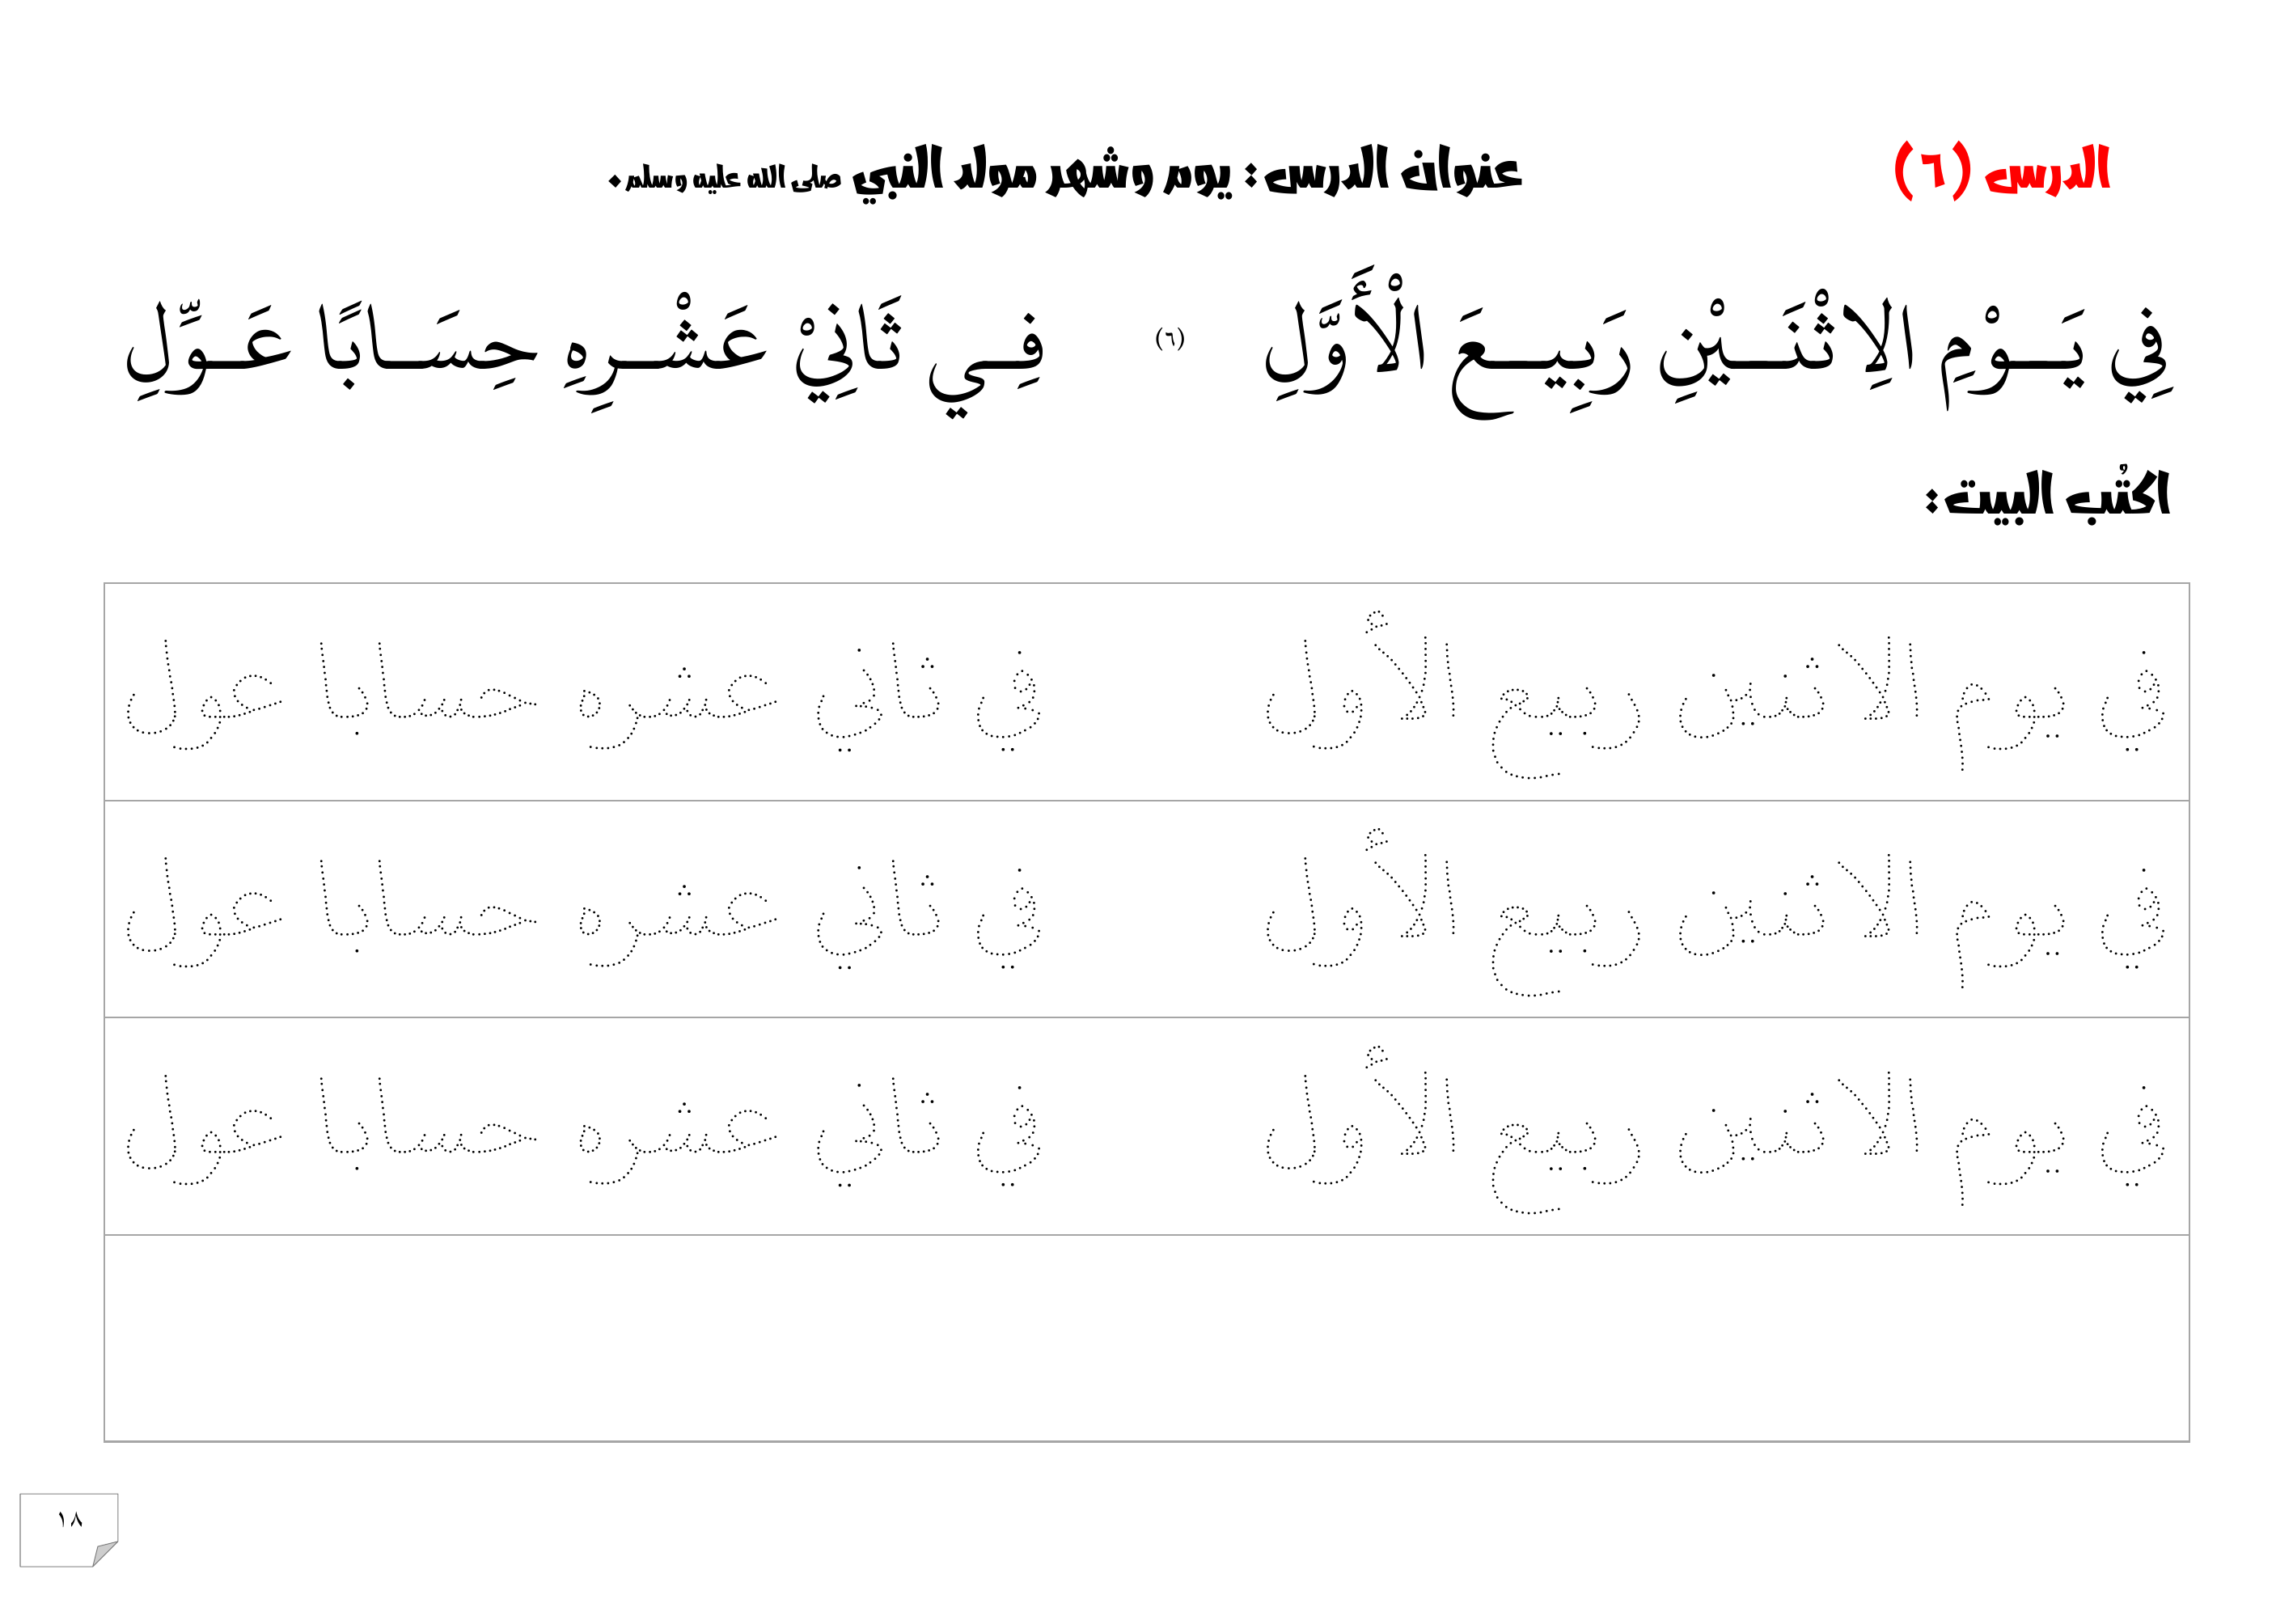 الدرس (٦) عنوان الدرس: يوم وشهر مولد النبي صلى الله عليه وسلم.
فِي يَـــوْمِ الِاثْنَـــيْنِ رَبِيـــعَ الْأَوَّلِ (٦) فِـــي ثَانِيْ عَشْـــرِهِ حِسَـــابًا عَـــوِّلِ
اكتُب البيت:
في يوم الاثنين ربيع الأول في ثاني عشره حسابا عول
في يوم الاثنين ربيع الأول في ثاني عشره حسابا عول
في يوم الاثنين ربيع الأول في ثاني عشره حسابا عول
١٨